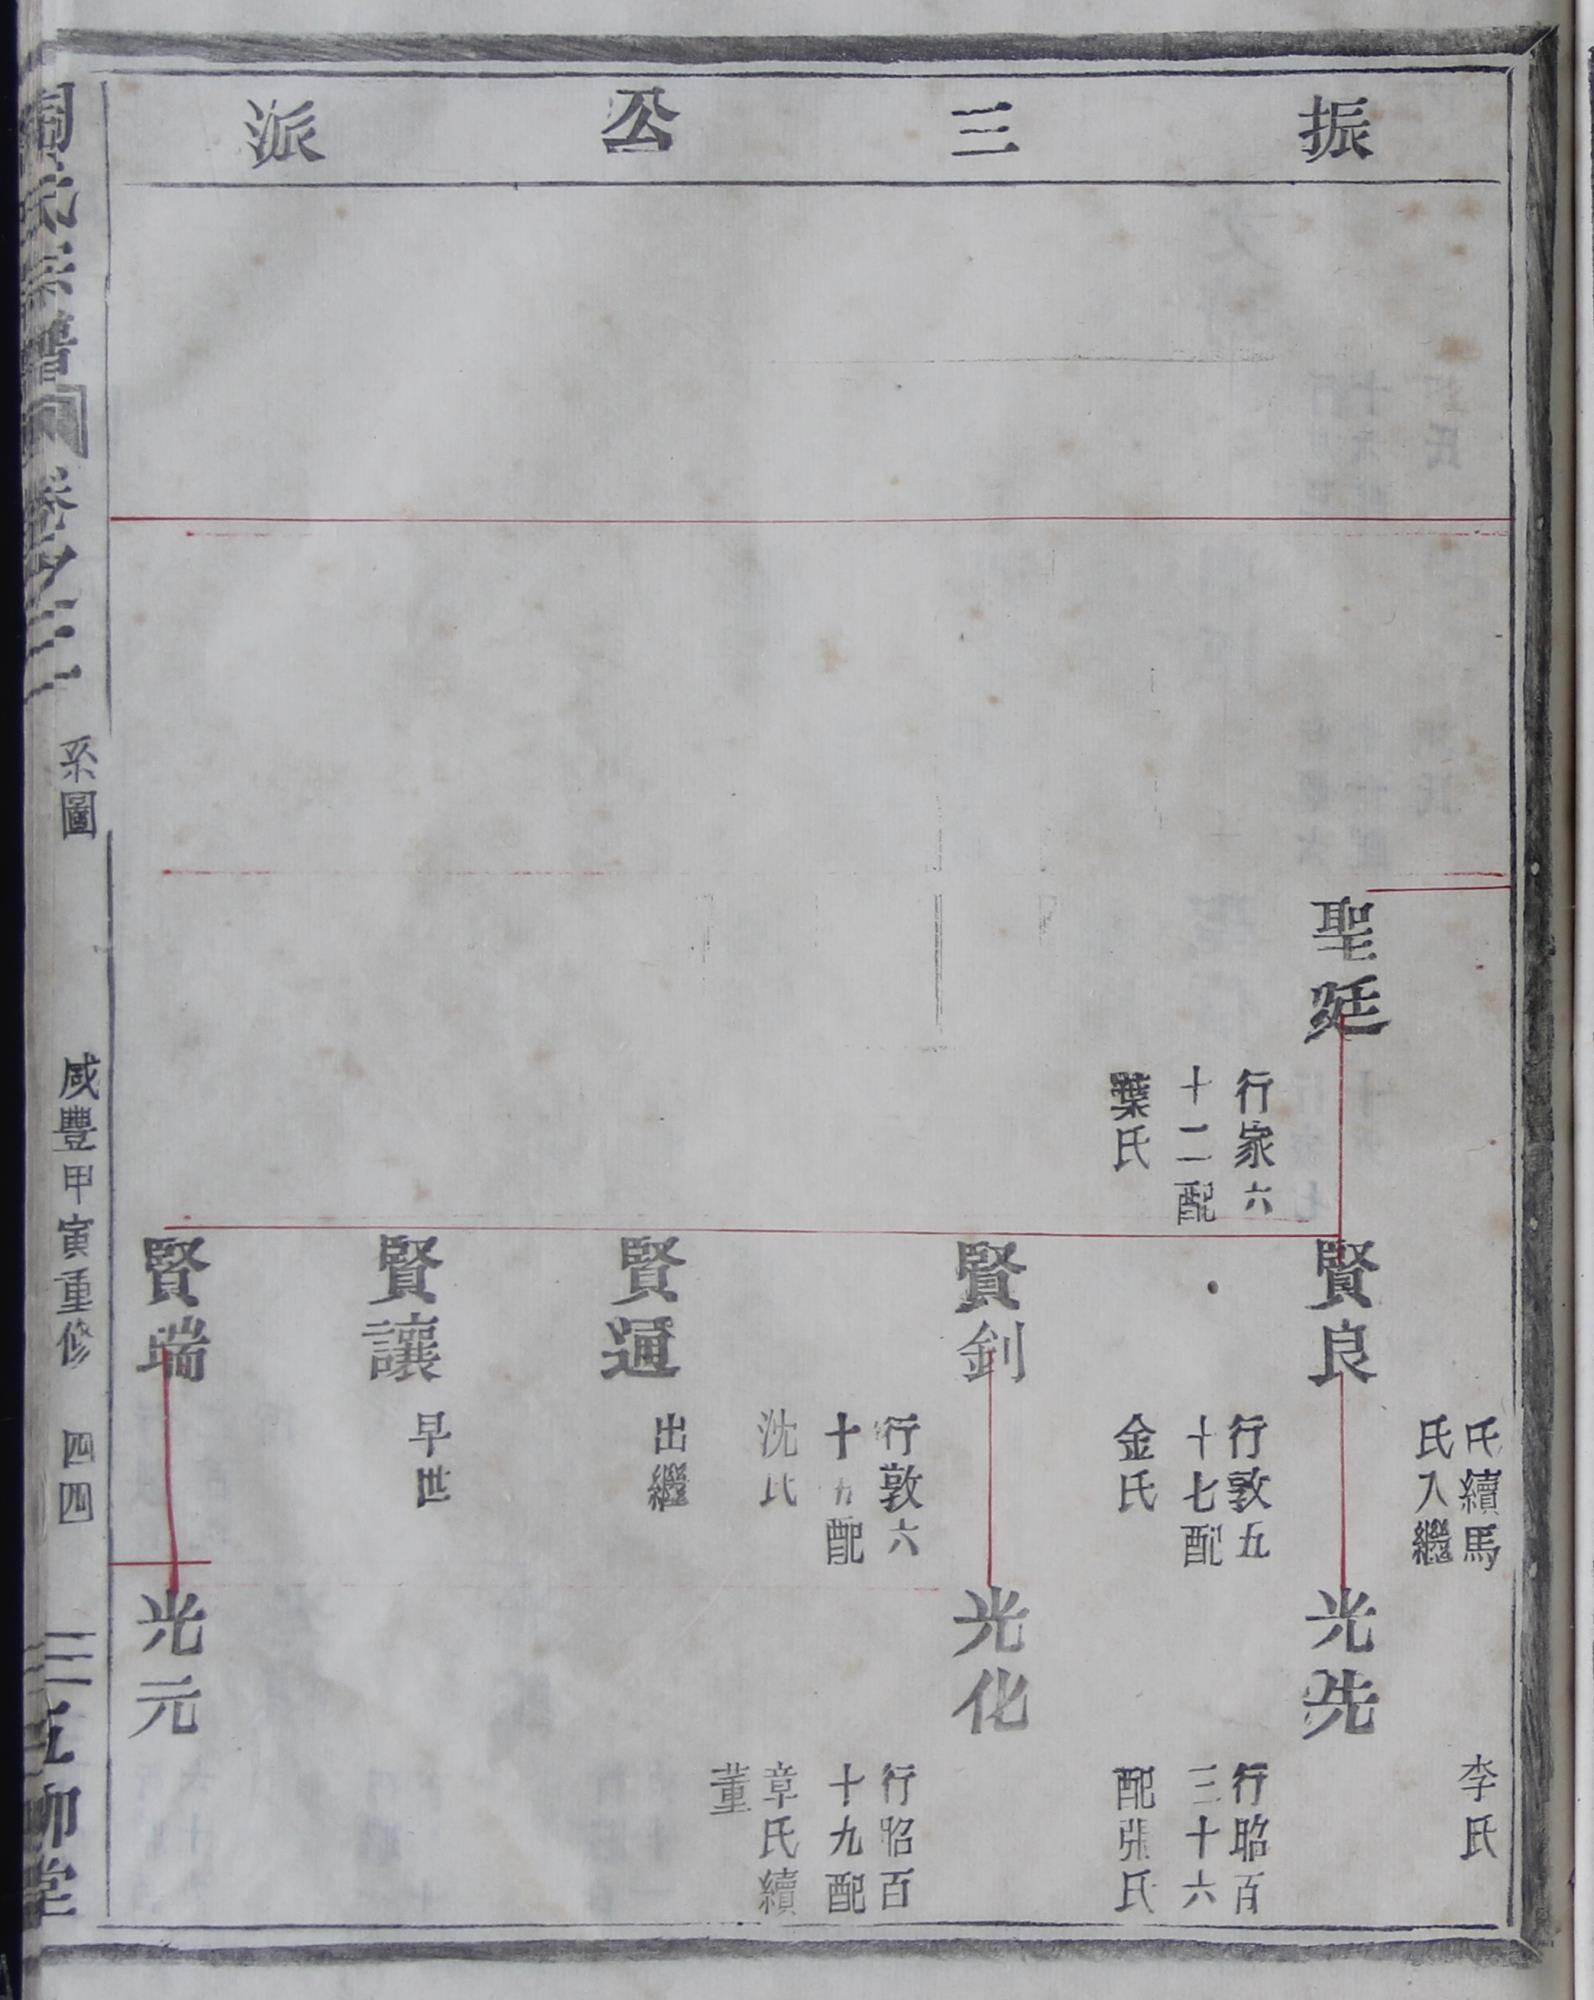 振三公派
聖廷
行家六
十二配
葉氏
氏續馬
氏入繼
賢良
行敦五
十七配
金氏
賢釗
行敦六
十五配
沈氏
賢通
出繼
賢讓
早世
賢端
李氏
光先
行昭百
三十六
配張氏
光化
行昭百
十九配
章氏續
董
光元
周氏宗譜
卷之三
系圖
咸豐甲寅重修
四四
五柳堂